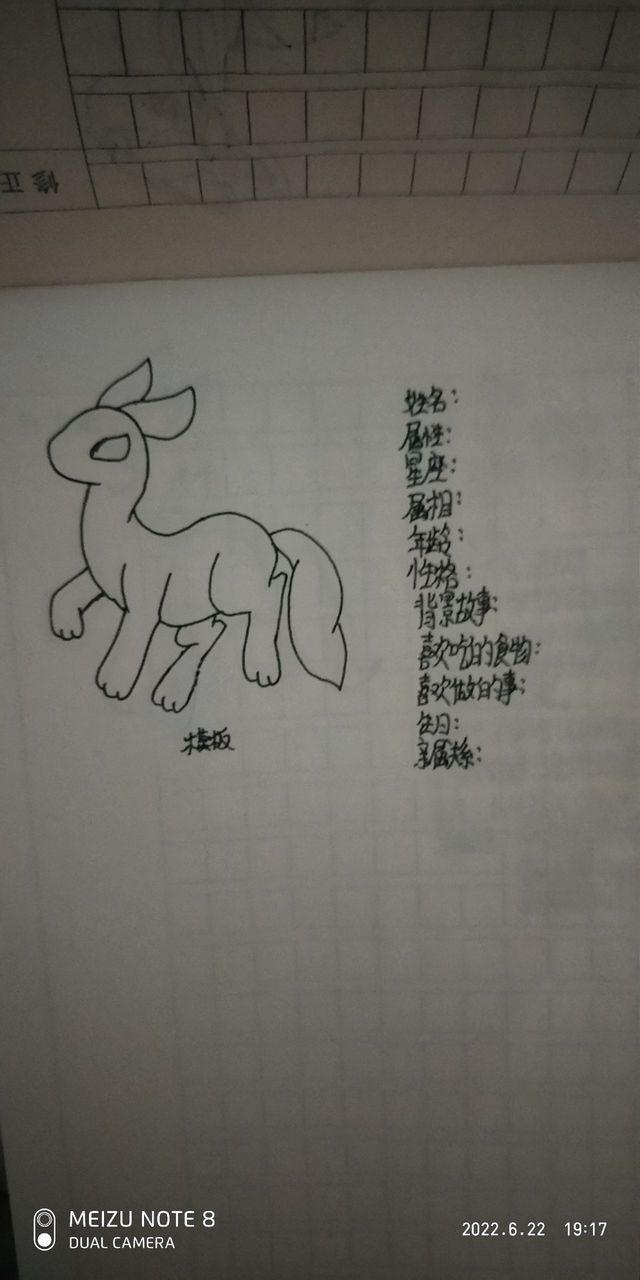 修正
姓名:
属性:
星座:
属相:
年龄:
性格:
背景故事:
喜欢吃的食物:
喜欢做的事:
生日:
亲属关系:
模板
MEIZU NOTE 8
DUAL CAMERA
2022.6.22 19:17